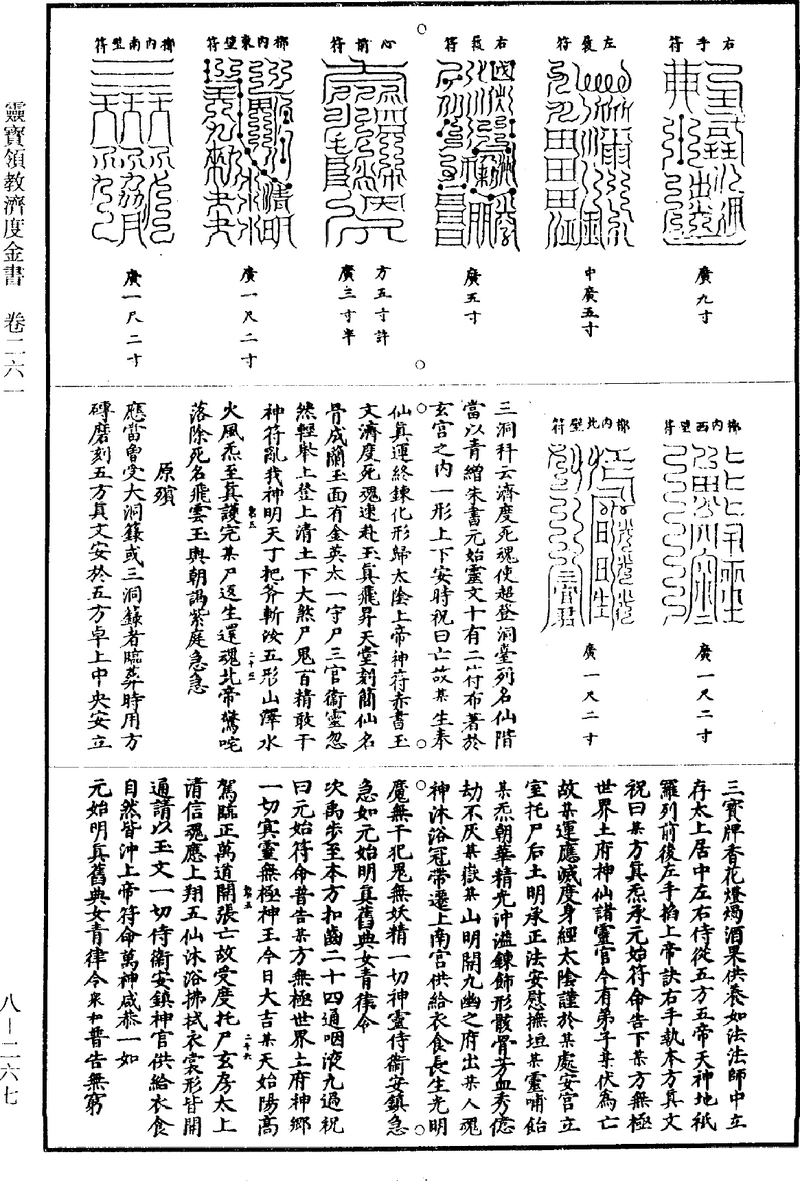 靈寶領教濟度金書　卷二六一
八—二六七
右手符
廣九寸
左股符
中廣五寸
右股符
廣五寸
心前符
方五寸許
廣三寸半
槨內東壁符
廣一尺二寸
槨內南壁符
廣一尺二寸
槨內西壁符
廣一尺二寸
槨內北壁符
廣一尺二寸
三洞科云濟度死魂使超登洞臺列名仙階
當以青繒朱書元始靈文十有二符布著於
玄宮之內一形上下安時祝曰亡故某生奉
仙真運終鍊化形歸太陰上帝神符赤書玉
文濟度死魂速赴玉真飛昇天堂刻簡仙名
骨成蘭玉面有金英太一守尸三官衛靈忽
然輕舉上登上清土下大煞尸鬼百精敢干
神符亂我神明天丁把斧斬汝五形山澤水
火風炁至真護完某尸返生還魂北帝驚咤
落除死名飛雲玉輿朝謁紫庭急急
原殯
應當曾受大洞籙或三洞籙者臨葬時用方
磚磨刻五方真文安於五方卓上中央安立
三寶牌香花燈燭酒果供養如法法師中立
存太上居中左右侍從五方五帝天神地祇
羅列前後左手掐上帝訣右手執本方真文
祝曰某方真炁承元始符命告下某方無極
世界土府神仙諸靈官今有弟子某伏為亡
故某運應滅度身經太陰謹於某處安宮立
室托尸后土明承正法安慰撫垣某靈哺飴
某炁朝華精光沖溢鍊飾形骸骨芳血秀億
劫不灰某嶽某山明開九幽之府出某人魂
神沐浴冠帶遷上南宮供給衣食長生光明
魔無干犯鬼無妖精一切神靈侍衛安鎮急
急如元始明真舊典女青律令
次禹步至本方扣齒二十四通咽液九過祝
曰元始符命普告某方無極世界土府神鄉
一切冥靈無極神王今日大吉某天始陽高
駕臨正萬道開張亡故受度托尸玄房太上
清信魂應上翔五仙沐浴拂拭衣裳形皆開
通請以玉文一切侍衛安鎮神官供給衣食
自然皆沖上帝符命萬神咸恭一如
元始明真舊典女青律令來和普告無窮